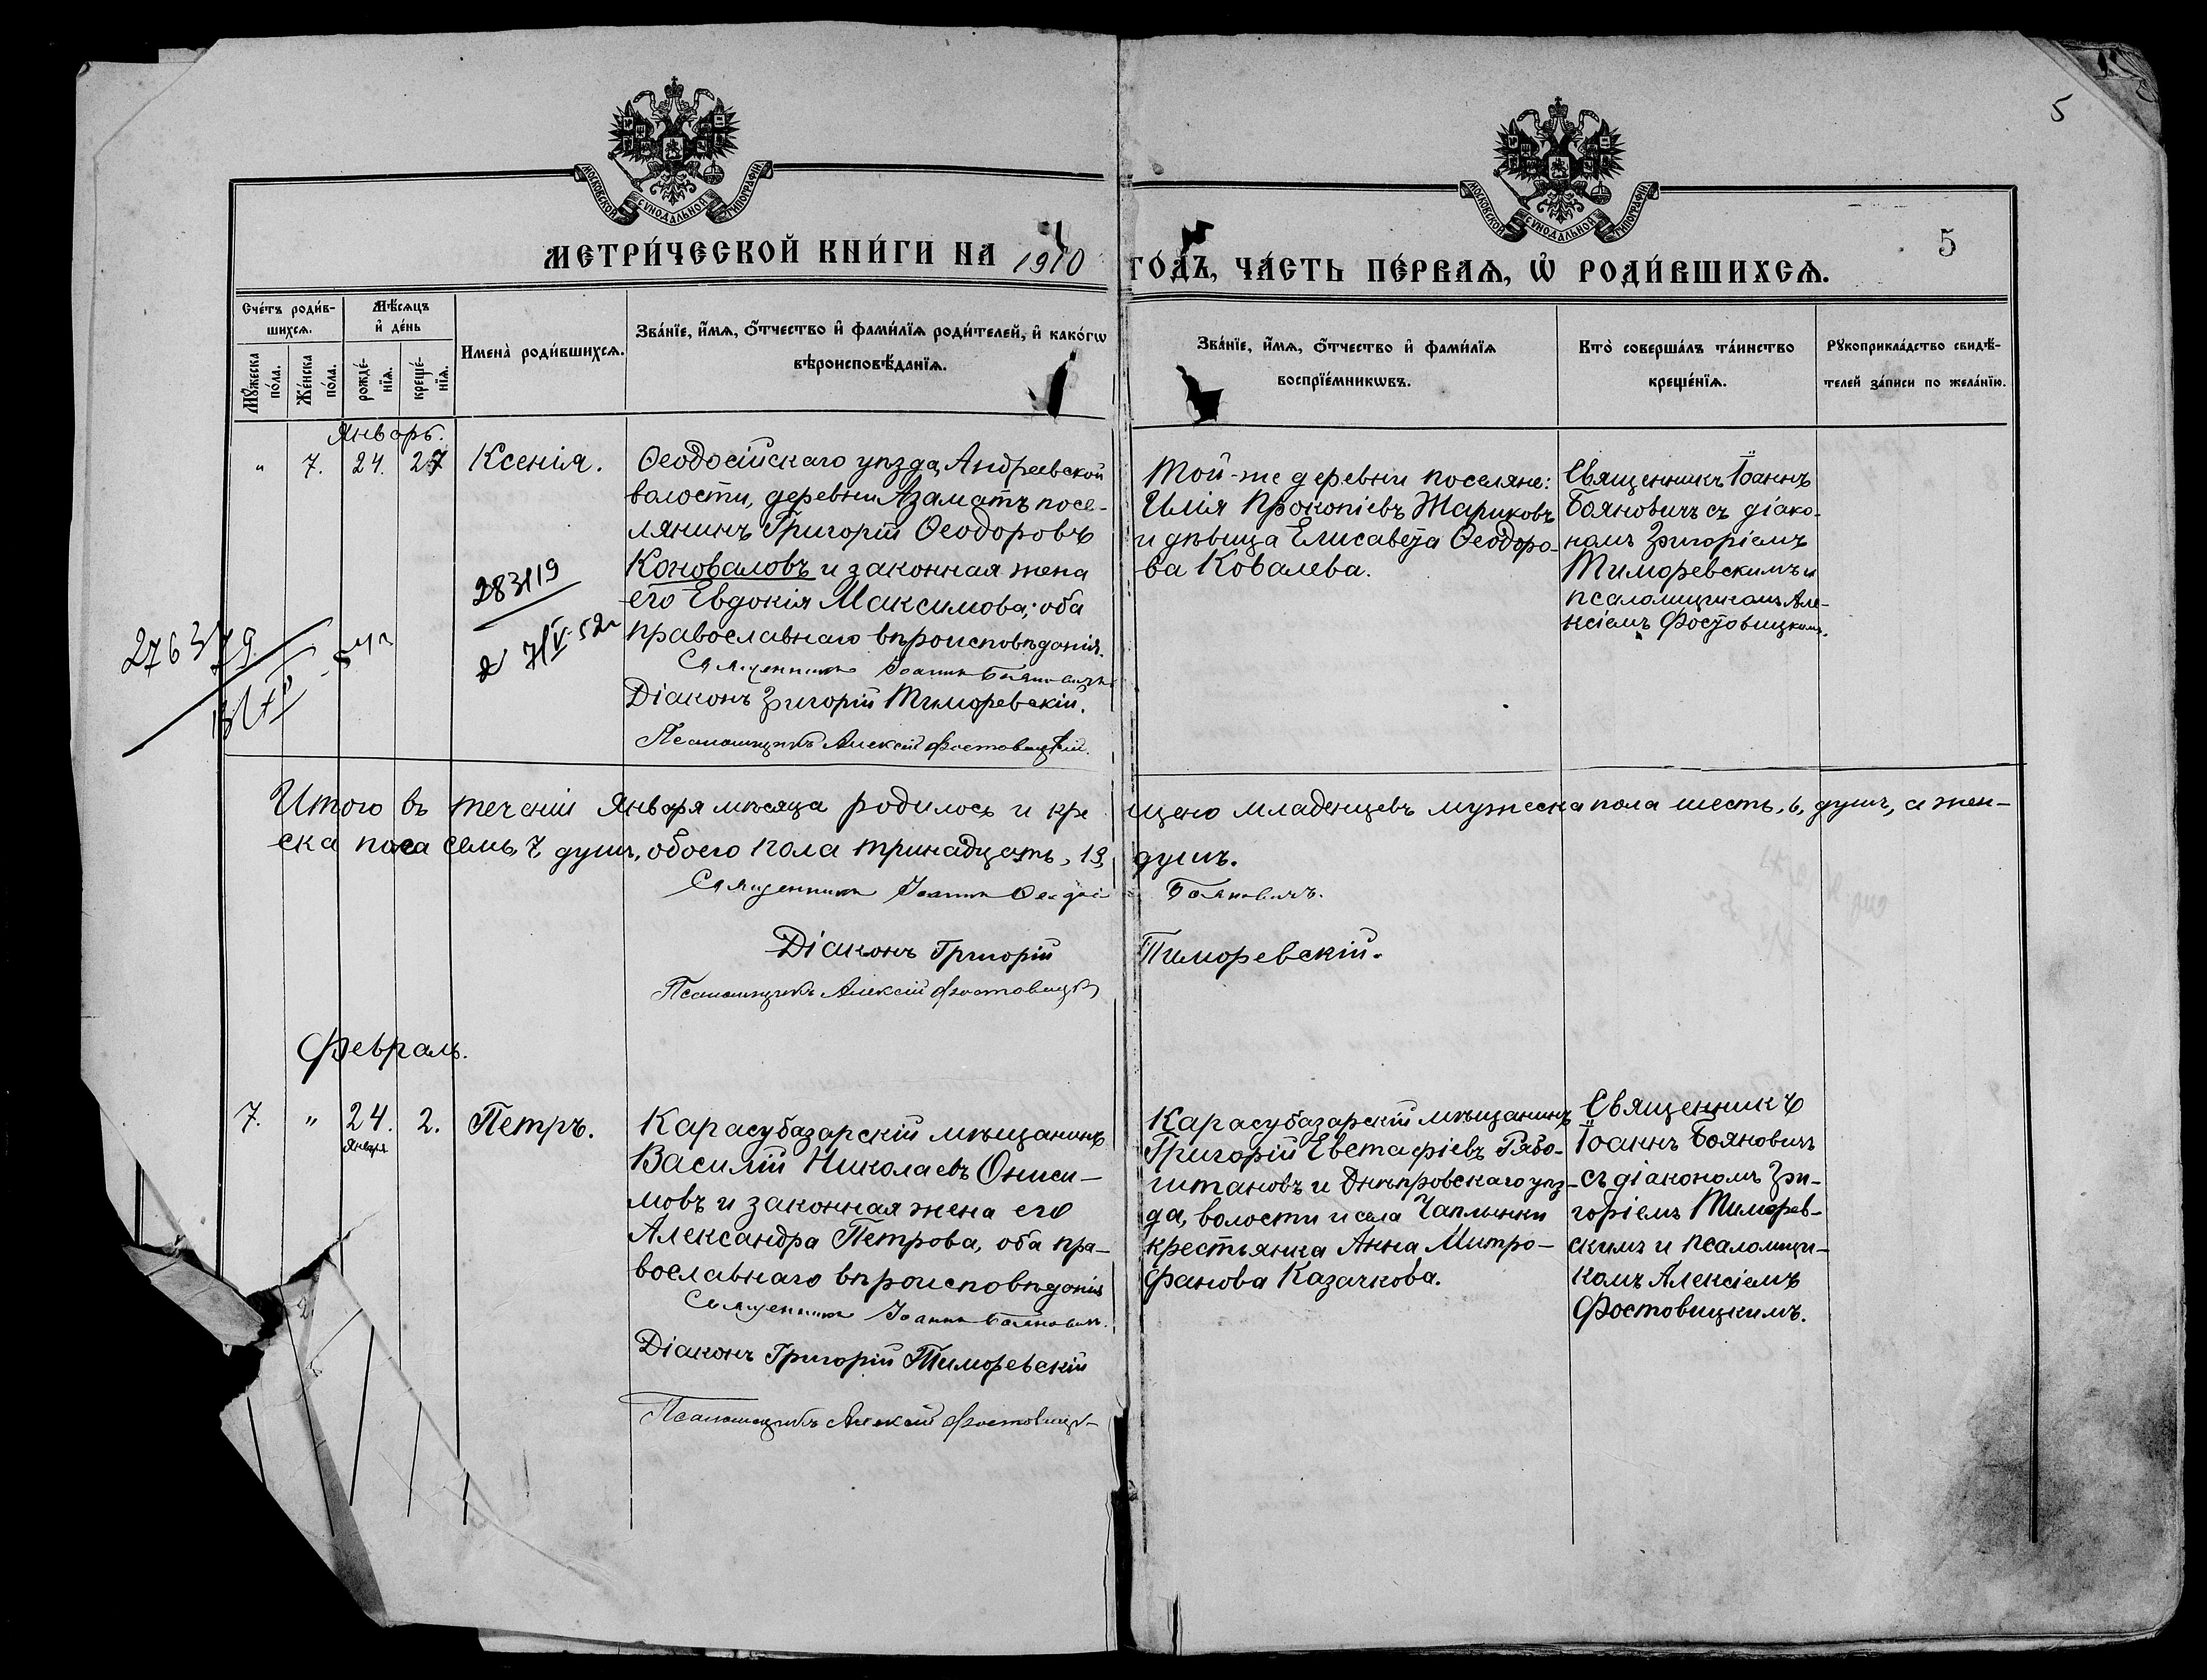 5
МОСКОВСКОЙ СѴНОДАЛЬНОЙ ТИПОГРАФІИ
МОСКОВСКОЙ СѴНОДАЛЬНОЙ ТИПОГРАФІИ
МЕТРИ́ЧЕСКОЙ КНИ́ГИ НА 1910 ГО́ДЪ, ЧА́СТЬ ПЕ́РВАѦ, Ѡ҆ РОДИ́ВШИХСѦ.
5
Сче́тъ роди́в-
шихсѧ.
Мꙋ́жеска по́ла.
Же́нска по́ла.
Мѣ́сѧцъ
и҆ де́нь
рожде́-
нїѧ.
креще́-
нїѧ.
Имена̀ роди́вшихсѧ.
Зва́нїе, и҆́мѧ, ѻ҆́тчество и҆ фами́лїѧ роди́телей, и҆ како́гѡ
вѣроисповѣ́данїѧ.
Зва́нїе, и҆́мѧ, ѻ҆́тчество и҆ фами́лїѧ
воспрїе́мникѡвъ.
Кто̀ соверша́лъ та́инство
креще́нїѧ.
Рꙋкоприкла́дство свидѣ́-
телей за́писи по жела́нїю.
Январь.
" 7. 24. 27 Ксенія.
Ѳеодосійскаго уѣзда, Андреевской
волости, деревни Азаматъ посе-
лянинъ Григорій Ѳеодоровъ
Коноваловъ и законная жена
его Евдокія Максимова; оба
православнаго вѣроисповѣданія.
Священникъ Іоаннъ Бояновичъ
Діаконъ Григорій Тиморевскій.
Псаломщикъ Алексій Фостовицкій.
283119
7/V-52г
276379
Той-же деревни поселяне:
Илія Прокопіевъ Жариковъ
и дѣвица Елисавета Ѳеодоро-
ва Ковалева.
Священникъ Іоаннъ
Бояновичъ съ діако-
номъ Григоріемъ
Тиморевскимъ и
псаломщикомъ Але-
ксіемъ Фостовицкимъ.
Итого въ теченіи Января мѣсяца родилось и крещено младенцевъ мужеска пола шесть, 6, душъ, а жен-
ска пола семь, 7 душъ, обоего пола тринадцать, 13, душъ.
Священникъ Іоаннъ Бояновичъ.
Діаконъ Григорій Тиморевскій.
Псаломщикъ Алексій Фостовицк
Февраль.
7. " 24. 2. Петръ.
Января
Карасубазарскій мѣщанинъ
Василій Николаевъ Ониси-
мовъ и законная жена его
Александра Петрова, оба пра-
вославнаго вѣроисповѣданія
Священникъ Іоаннъ Бояновичъ.
Діаконъ Григорій Тиморевскій
Псаломщикъ Алексій Фостовицк
Карасубазарскій мѣщанинъ
Григорій Евстафіевъ Рябо-
штановъ и Днѣпровскаго уѣз-
да, волости и села Чаплынки
крестьянка Анна Митро-
фанова Казачкова.
Священникъ
Іоаннъ Бояновичъ
съ діакономъ Гри-
горіемъ Тиморев-
скимъ и псаломщи-
комъ Алексіемъ
Фостовицкимъ.